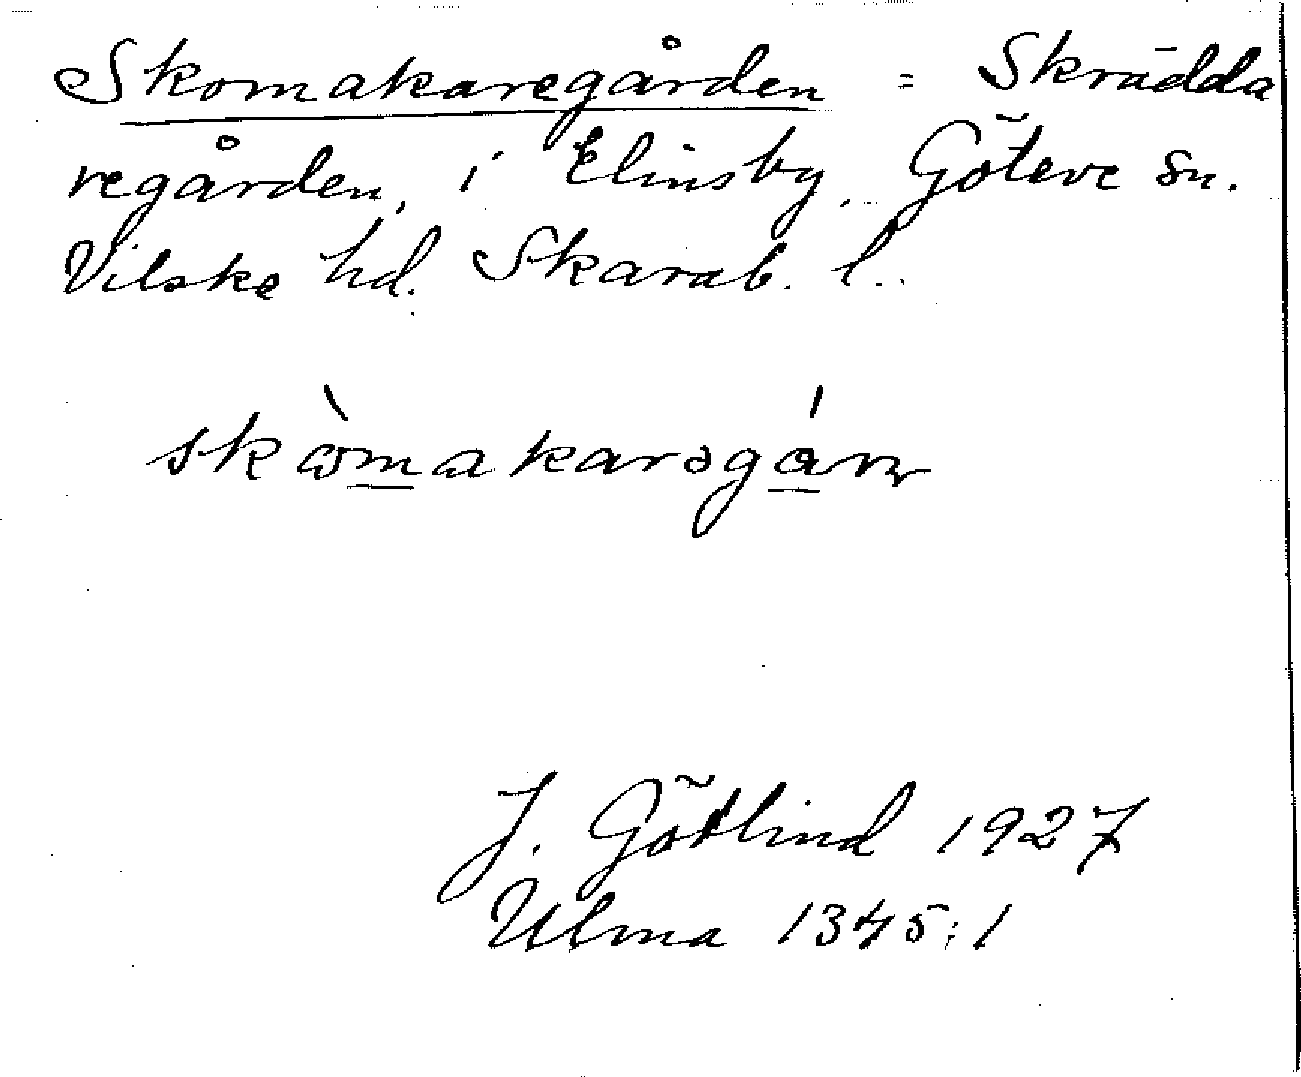 Skomakaregården = Skrädda
regården, i Elinsby, Göteve sn.
Vilske hd. Skarab. l.
skòmakarəgán
J. Götlind 1927
Ulma 1345:1